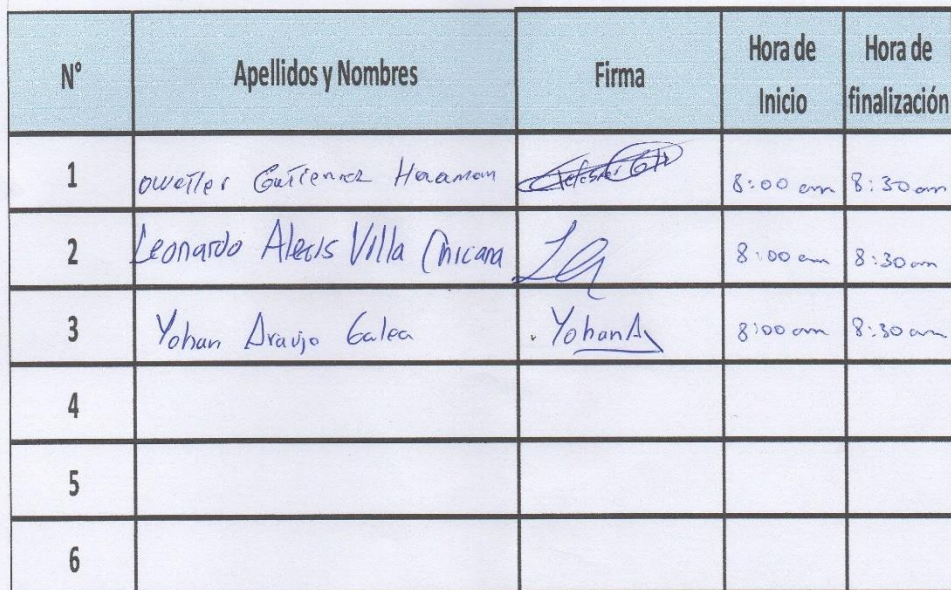 N° Apellidos y Nombres Firma Hora de Inicio Hora de finalización
1 Gutierrez 8:00 am 8:30 am
2 Leonardo Alexis Villa Chicana 8:00 am 8:30 am
3 Yohan Araujo Galea YohanA 8:00 am 8:30 am
4
5
6